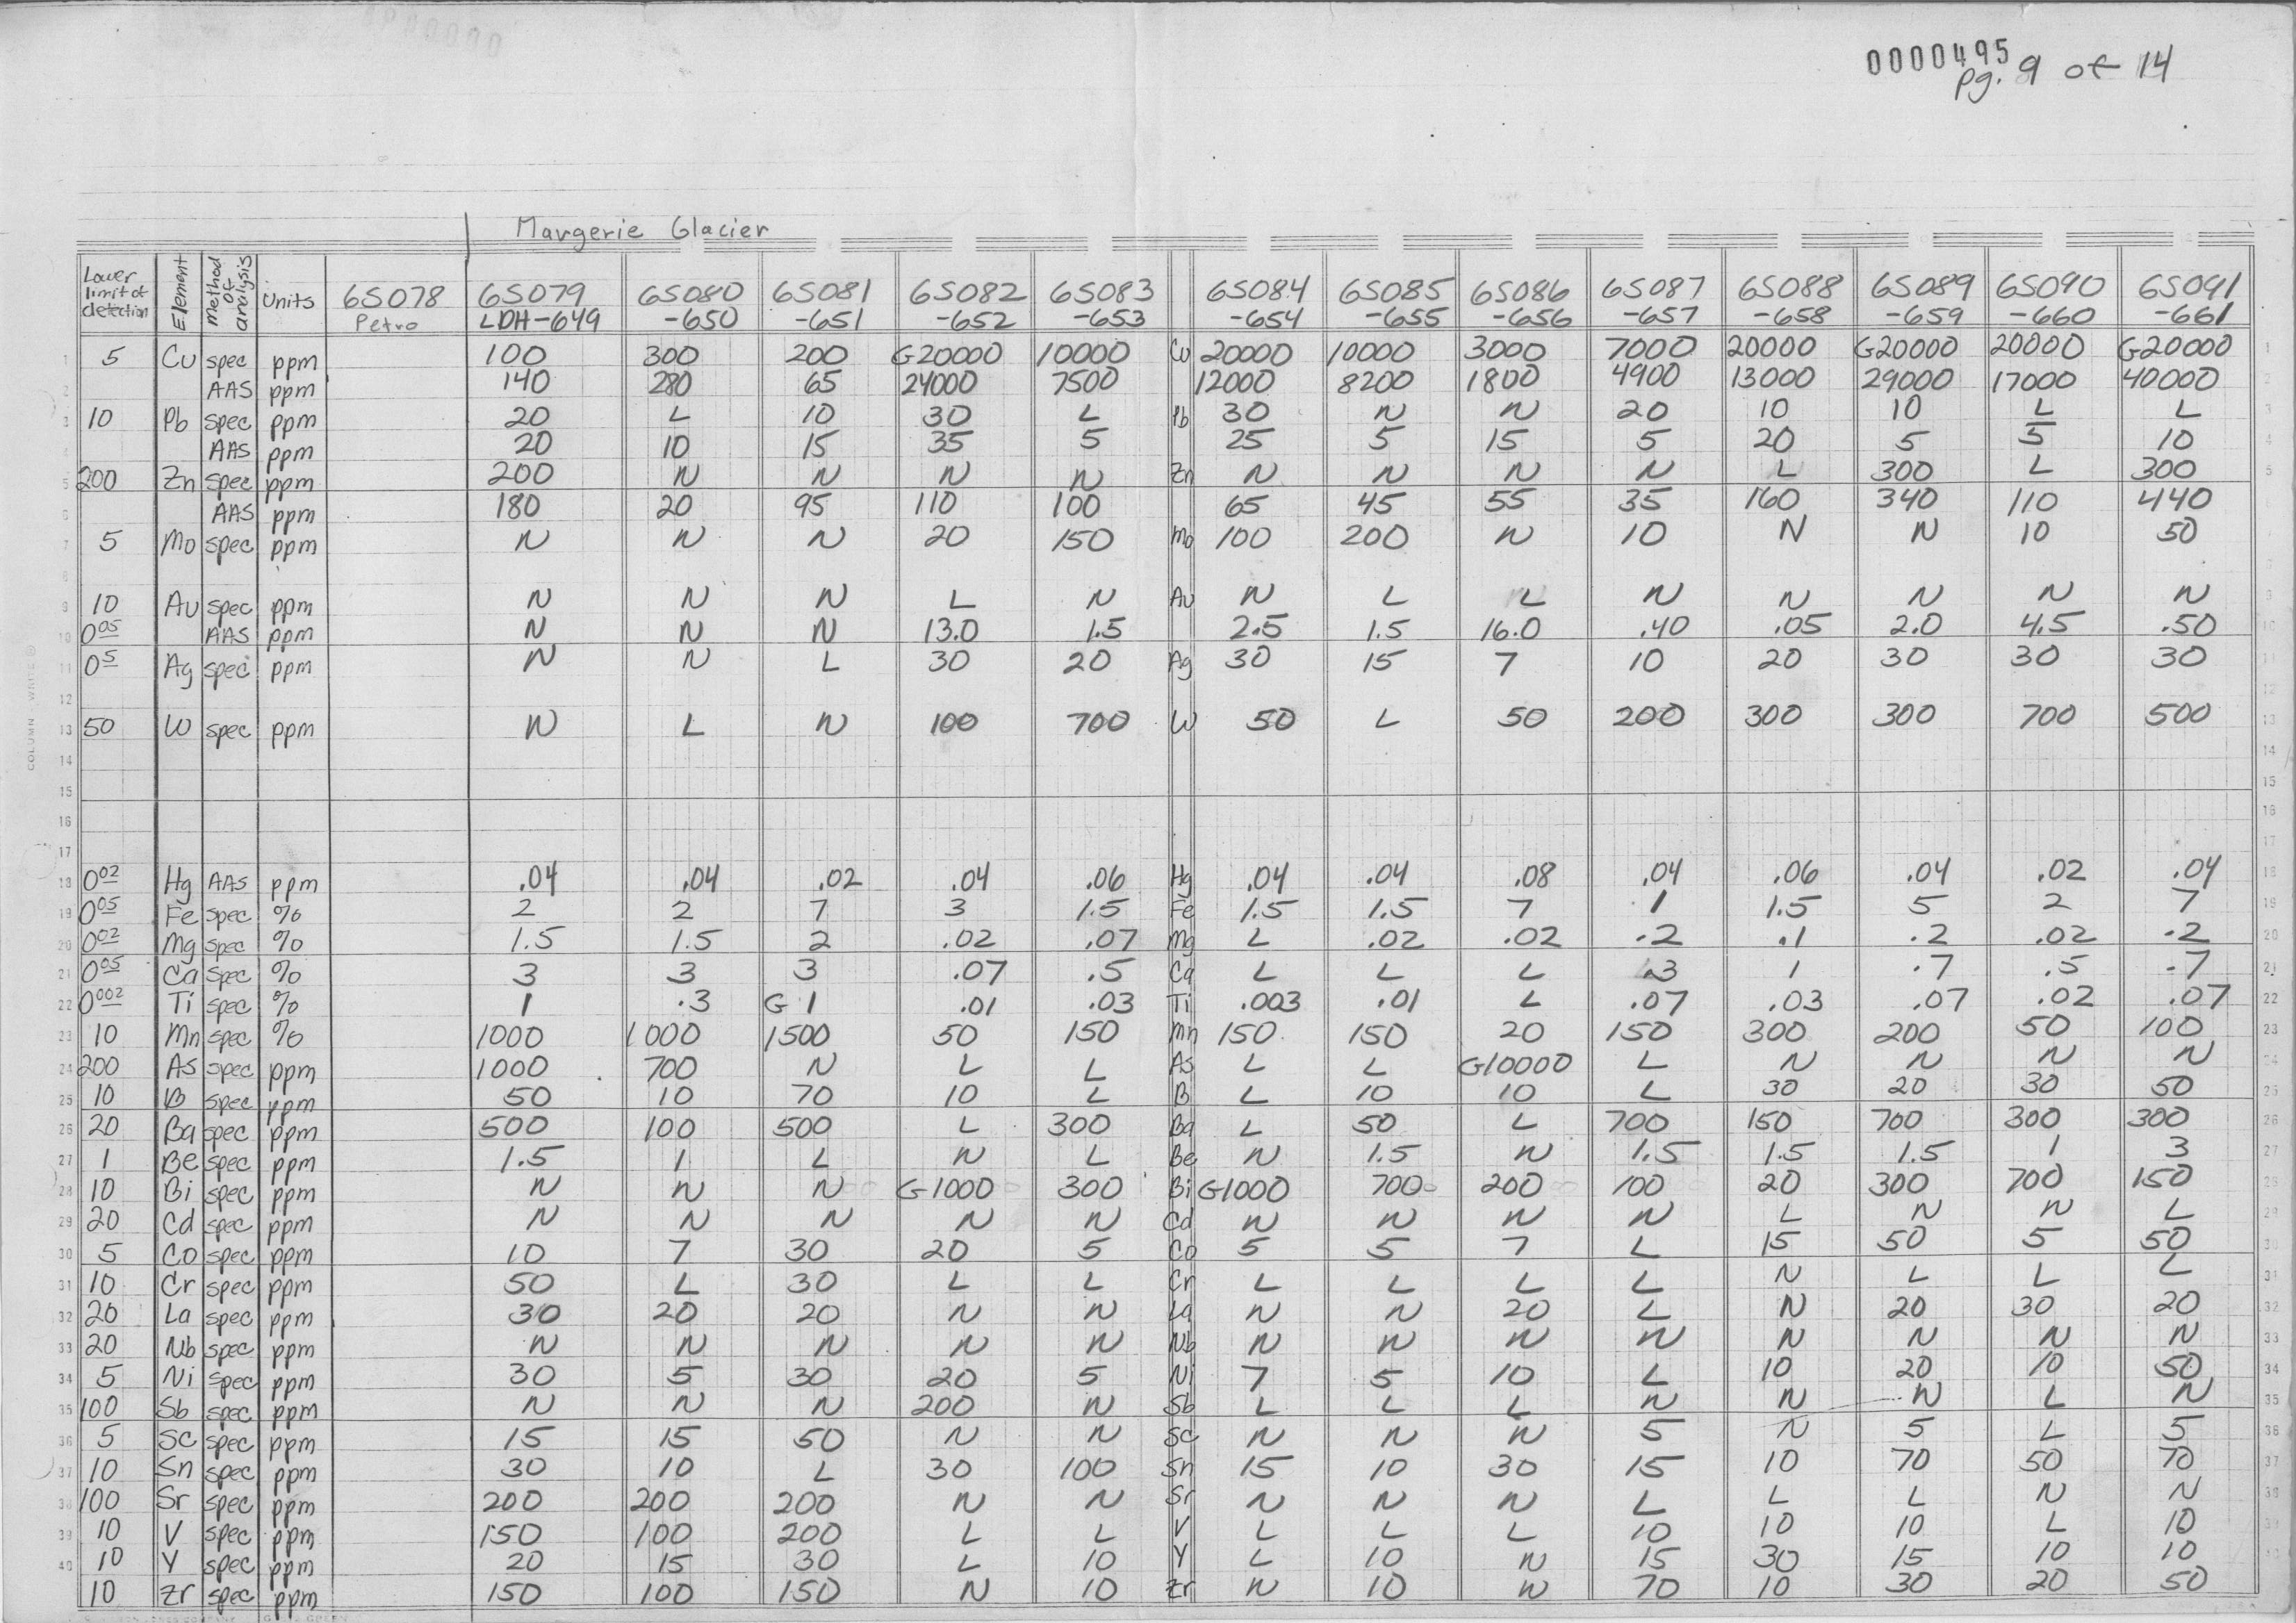 0000495
pg. 9 of 14
Margerie Glacier
Lower limit of detection Element Method of analysis Units 6S078 Petro 6S079 LDH-649 6S080 -650 6S081 -651 6S082 -652 6S083 -653 6S084 -654 6S085 -655 6S086 -656 6S087 -657 6S088 -658 6S089 -659 6S090 -660 6S091 -661
1 5 Cu spec ppm 100 300 200 G20000 10000 Cu 20000 10000 3000 7000 20000 G20000 20000 G20000 1
2 AAS ppm 140 280 65 24000 7500 12000 8200 1800 4900 13000 29000 17000 40000 2
3 10 Pb spec ppm 20 L 10 30 L Pb 30 N N 20 10 10 L L 3
4 AAS ppm 20 10 15 35 5 25 5 15 5 20 5 5 10 4
5 200 Zn spec ppm 200 N N N N Zn N N N N L 300 L 300 5
6 AAS ppm 180 20 95 110 100 65 45 55 35 160 340 110 440 6
7 5 Mo spec ppm N N N 20 150 Mo 100 200 N 10 N N 10 50 7
8
9 10 Au spec ppm N N N L N Au N L L N N N N N 9
10 0.05 AAS ppm N N N 13.0 1.5 2.5 1.5 16.0 .40 .05 2.0 4.5 .50 10
11 0.5 Ag spec ppm N N L 30 20 Ag 30 15 7 10 20 30 30 30 11
12 12
13 50 W spec ppm N L N 100 700 W 50 L 50 200 300 300 700 500 13
14 14
15 15
16 16
17
18 0.02 Hg AAS ppm .04 .04 .02 .04 .06 Hg .04 .04 .08 .04 .06 .04 .02 .04 18
19 0.05 Fe spec % 2 2 7 3 1.5 Fe 1.5 1.5 7 1 1.5 5 2 7 19
20 0.02 Mg spec % 1.5 1.5 2 .02 .07 Mg L .02 .02 .2 .1 .2 .02 .2 20
21 0.05 Ca spec % 3 3 3 .07 .5 Ca L L L .3 1 .7 .5 .7 21
22 0.002 Ti spec % 1 .3 G 1 .01 .03 Ti .003 .01 L .07 .03 .07 .02 .07 22
23 10 Mn spec % 1000 1000 1500 50 150 Mn 150 150 20 150 300 200 50 100 23
24 200 As spec ppm 1000 700 N L L As L L G10000 L N N N N 24
25 10 B spec ppm 50 10 70 10 L B L 10 10 L 30 20 30 50 25
26 20 Ba spec ppm 500 100 500 L 300 Ba L 50 L 700 150 700 300 300 26
27 1 Be spec ppm 1.5 1 L N L Be N 1.5 N 1.5 1.5 1.5 1 3 27
28 10 Bi spec ppm N N N G1000 300 Bi G1000 700 200 100 20 300 700 150 28
29 20 Cd spec ppm N N N N N Cd N N N N L N N L 29
30 5 Co spec ppm 10 7 30 20 5 Co 5 5 7 L 15 50 5 50 30
31 10 Cr spec ppm 50 L 30 L L Cr L L L L N L L L 31
32 20 La spec ppm 30 20 20 N N La N N 20 L N 20 30 20 32
33 20 Nb spec ppm N N N N N Nb N N N N N N N N 33
34 5 Ni spec ppm 30 5 30 20 5 Ni 7 5 10 L 10 20 10 50 34
35 100 Sb spec ppm N N N 200 N Sb L L L N N N L N 35
36 5 Sc spec ppm 15 15 50 N N Sc N N N 5 N 5 L 5 36
37 10 Sn spec ppm 30 10 L 30 100 Sn 15 10 30 15 10 70 50 70 37
38 100 Sr spec ppm 200 200 200 N N Sr N N N L L L N N 38
39 10 V spec ppm 150 100 200 L L V L L L 10 10 10 L 10 39
40 10 Y spec ppm 20 15 30 L 10 Y L 10 N 15 30 15 10 10 40
10 Zr spec ppm 150 100 150 N 10 Zr N 10 N 70 10 30 20 50
COLUMN WRITE